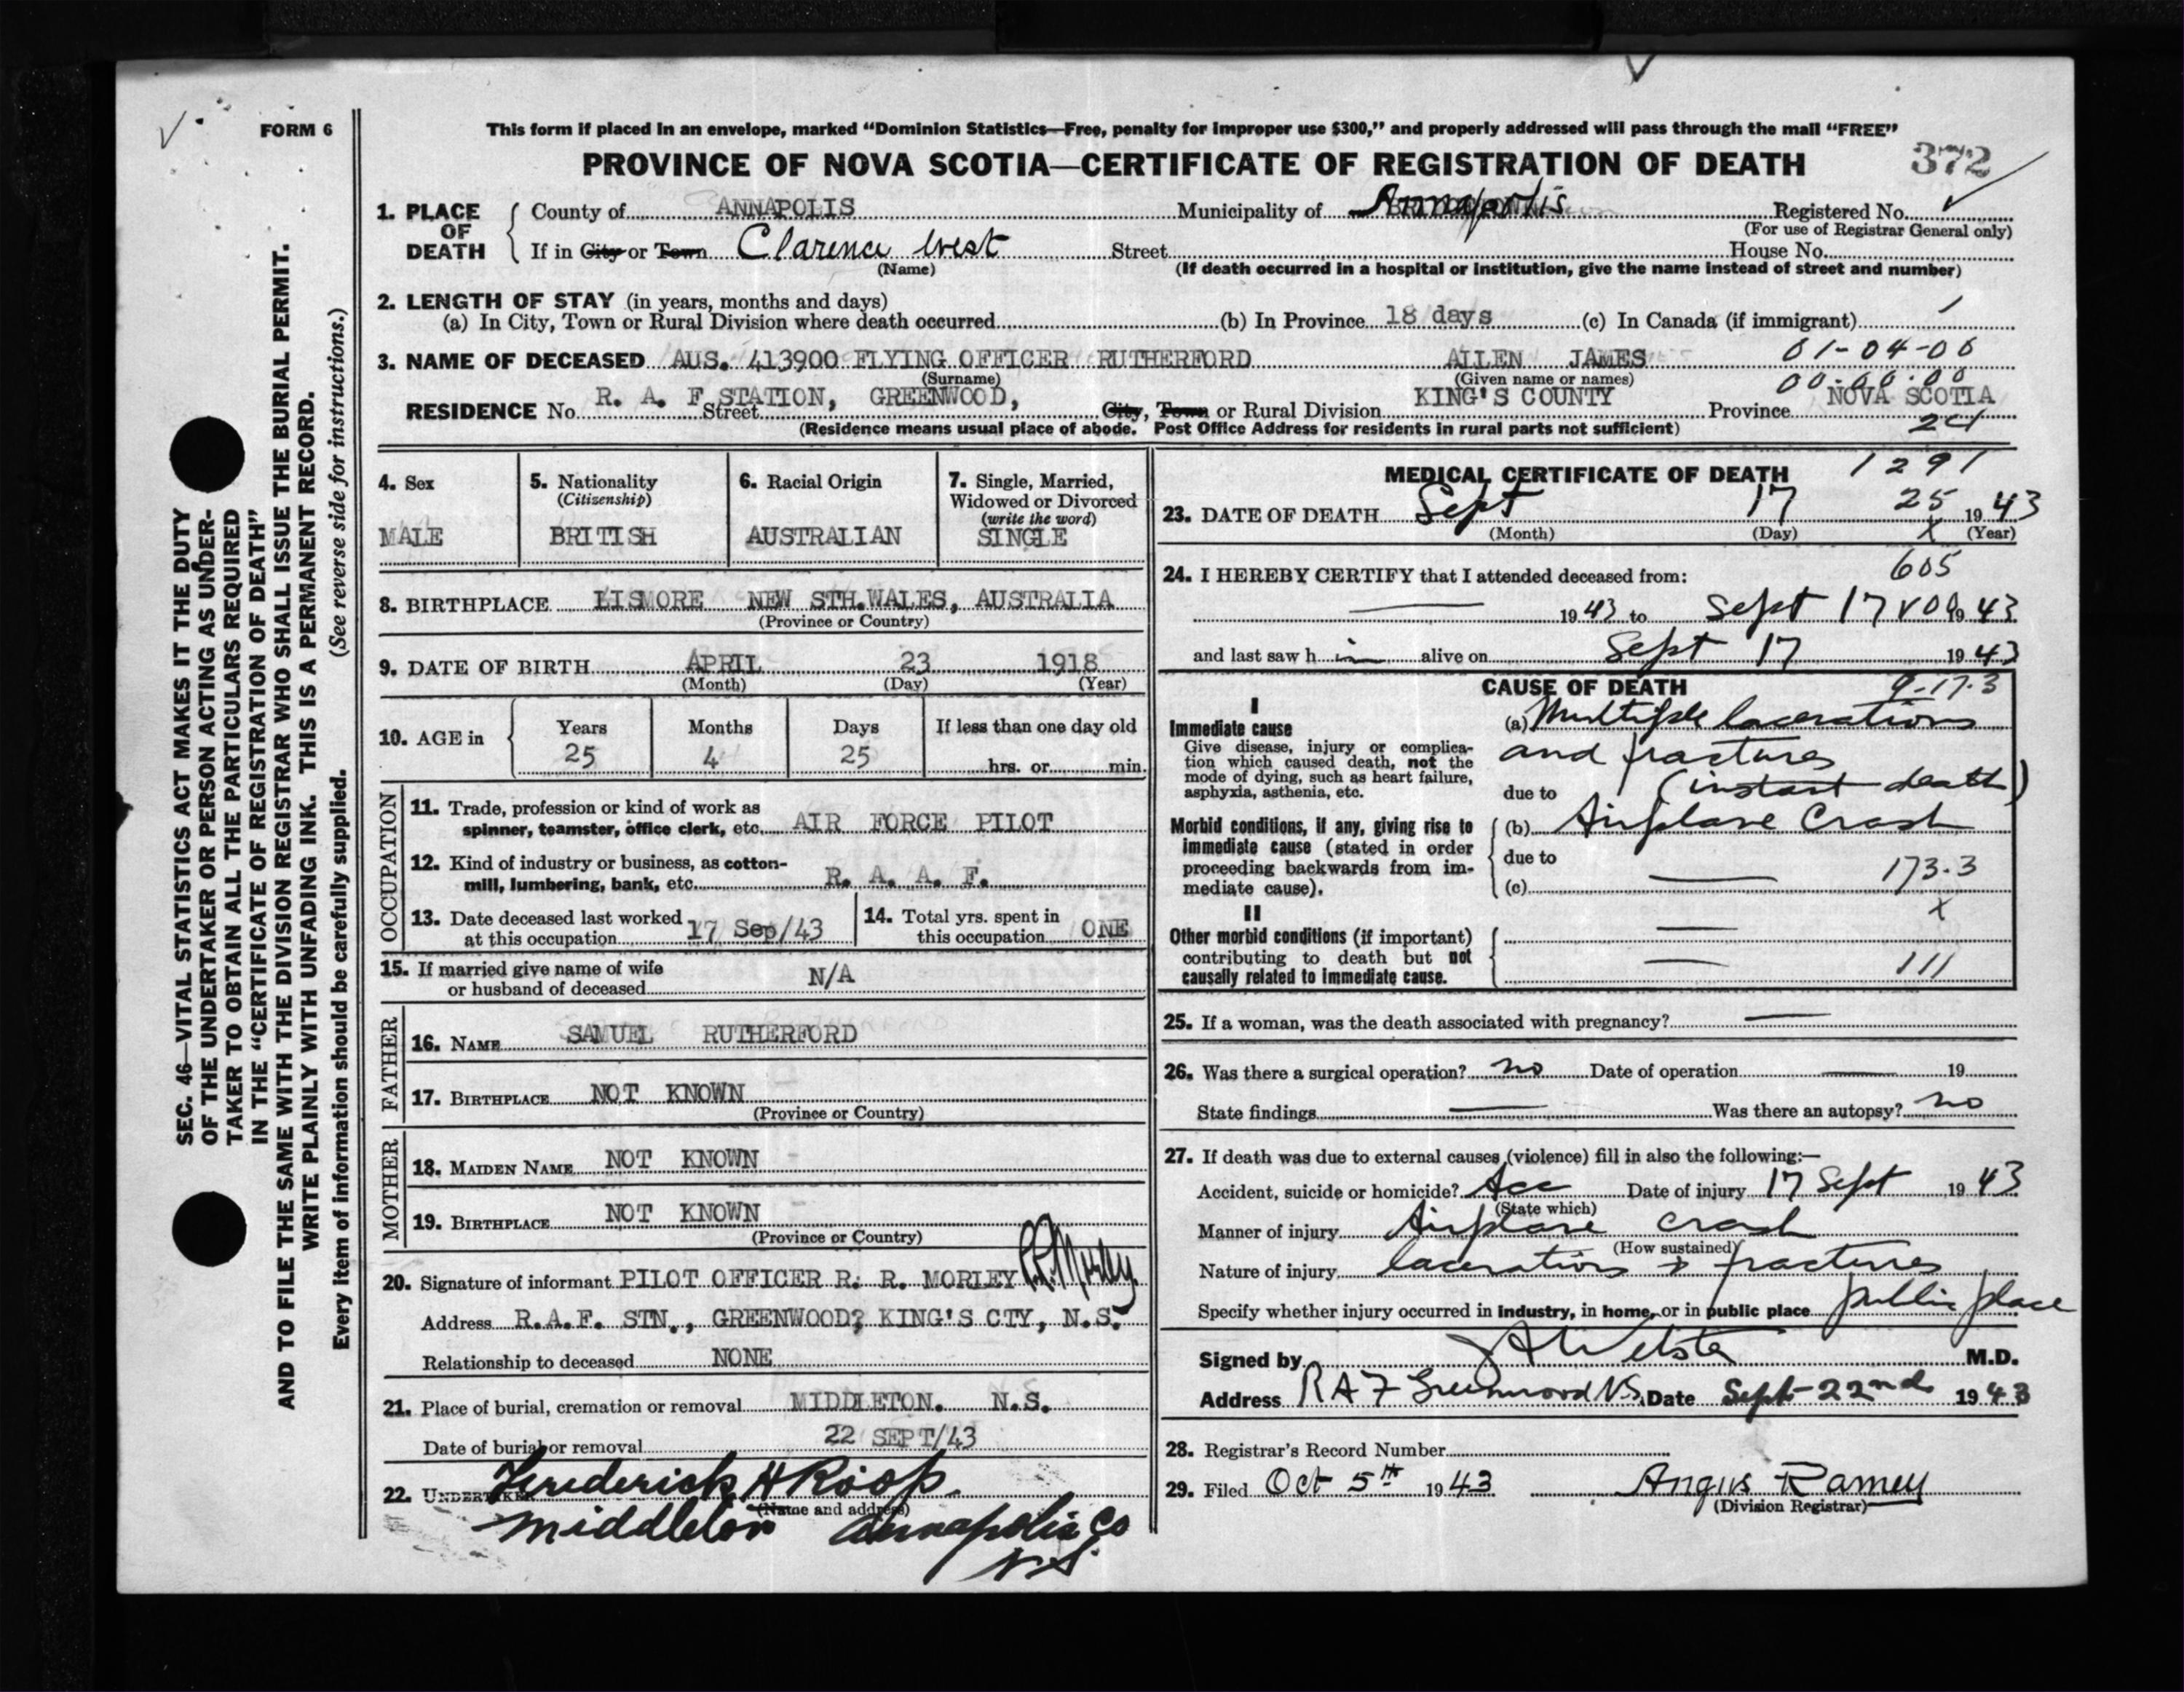 FORM 6
This form if placed in an envelope, marked "Dominion Statistics—Free, penalty for improper use $300," and properly addressed will pass through the mail "FREE"
PROVINCE OF NOVA SCOTIA—CERTIFICATE OF REGISTRATION OF DEATH 372
SEC. 46—VITAL STATISTICS ACT MAKES IT THE DUTY
OF THE UNDERTAKER OR PERSON ACTING AS UNDER-
TAKER TO OBTAIN ALL THE PARTICULARS REQUIRED
IN THE "CERTIFICATE OF REGISTRATION OF DEATH"
AND TO FILE THE SAME WITH THE DIVISION REGISTRAR WHO SHALL ISSUE THE BURIAL PERMIT.
WRITE PLAINLY WITH UNFADING INK. THIS IS A PERMANENT RECORD.
Every item of information should be carefully supplied. (See reverse side for instructions.)
1. PLACE OF DEATH
County of ANNAPOLIS Municipality of Annapolis Registered No.
(For use of Registrar General only)
If in City or Town Clarence West Street House No.
(Name) (If death occurred in a hospital or institution, give the name instead of street and number)
2. LENGTH OF STAY (in years, months and days)
(a) In City, Town or Rural Division where death occurred (b) In Province 18 days (c) In Canada (if immigrant)
3. NAME OF DECEASED AUS. 413900 FLYING OFFICER RUTHERFORD ALLEN JAMES 01-04-06
(Surname) (Given name or names) 00-00-00
RESIDENCE No. R. A. F STATION, GREENWOOD, Street City, Town or Rural Division KING'S COUNTY Province NOVA SCOTIA
(Residence means usual place of abode. Post Office Address for residents in rural parts not sufficient) 24
4. Sex
MALE
5. Nationality
(Citizenship)
BRITISH
6. Racial Origin
AUSTRALIAN
7. Single, Married,
Widowed or Divorced
(write the word)
SINGLE
8. BIRTHPLACE LISMORE NEW STH.WALES, AUSTRALIA
(Province or Country)
9. DATE OF BIRTH APRIL 23 1918
(Month) (Day) (Year)
10. AGE in Years Months Days If less than one day old
25 4 25 hrs. or min.
OCCUPATION
11. Trade, profession or kind of work as
spinner, teamster, office clerk, etc. AIR FORCE PILOT
12. Kind of industry or business, as cotton-
mill, lumbering, bank, etc. R. A. A. F.
13. Date deceased last worked
at this occupation 17 Sep/43
14. Total yrs. spent in
this occupation ONE
15. If married give name of wife
or husband of deceased N/A
FATHER
16. NAME SAMUEL RUTHERFORD
17. BIRTHPLACE NOT KNOWN
(Province or Country)
MOTHER
18. MAIDEN NAME NOT KNOWN
19. BIRTHPLACE NOT KNOWN
(Province or Country)
20. Signature of informant PILOT OFFICER R. R. MORLEY R.R.Morley
Address R.A.F. STN., GREENWOOD? KING'S CTY, N.S.
Relationship to deceased NONE
21. Place of burial, cremation or removal MIDDLETON. N.S.
Date of burial or removal 22 SEPT/43
22. UNDERTAKER Frederick H Roop
(Name and address)
Middleton Annapolis Co
N.S.
MEDICAL CERTIFICATE OF DEATH 1291
23. DATE OF DEATH Sept 17 25 1943
(Month) (Day) X (Year)
24. I HEREBY CERTIFY that I attended deceased from: 605
— 1943 to Sept 17 1943
and last saw him alive on Sept 17 1943
CAUSE OF DEATH 9-17-3
I
Immediate cause
Give disease, injury or complica-
tion which caused death, not the
mode of dying, such as heart failure,
asphyxia, asthenia, etc.
(a) Multiple lacerations
and fractures
due to (instant death)
Morbid conditions, if any, giving rise to
immediate cause (stated in order
proceeding backwards from im-
mediate cause).
(b) Airplane Crash
due to
(c) — 173.3
X
II
Other morbid conditions (if important)
contributing to death but not
causally related to immediate cause.
—
— 111
25. If a woman, was the death associated with pregnancy? —
26. Was there a surgical operation? no Date of operation — 19
State findings — Was there an autopsy? no
27. If death was due to external causes (violence) fill in also the following:—
Accident, suicide or homicide? Acc Date of injury 17 Sept 1943
(State which)
Manner of injury Airplane crash
(How sustained)
Nature of injury lacerations & fractures
Specify whether injury occurred in industry, in home, or in public place public place
Signed by M.D.
Address RAF Greenwood N.S. Date Sept 22nd 1943
28. Registrar's Record Number
29. Filed Oct 5th 1943 Angus Ramey
(Division Registrar)